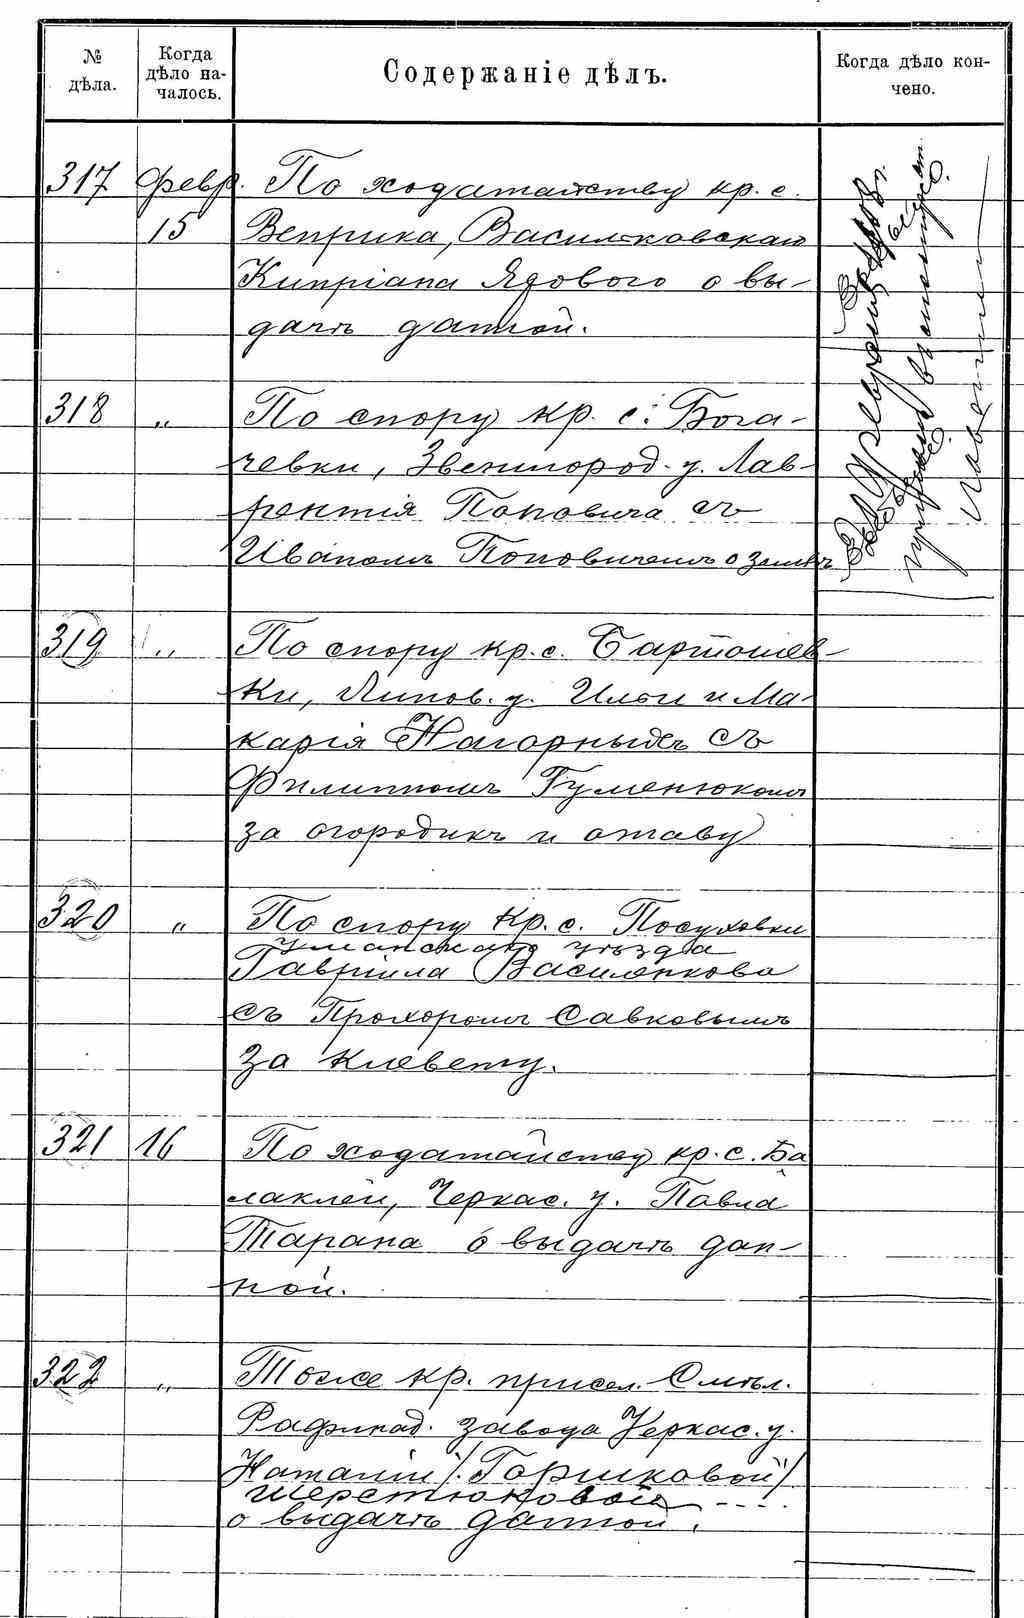 № дѣла.
Когда дѣло на-
чалось.
Содержаніе дѣлъ.
Когда дѣло кон-
чено.
317 Февр. По ходатайству кр. с.
15 Веприка, Васильковскаго
Кипріана Ядового о вы-
дачѣ данной.
318 „ По спору кр. с. Бога-
чевки, Звенигород. у. Лав-
рентія Поповича съ
Иваномъ Поповичемъ о землѣ
319 „ По спору кр. с. Бартошев-
ки, Липов. у. Ильи и Ма-
карія Нагорныхъ съ
Филиппомъ Гуменюкомъ
за огородикъ и отаву
320 „ По спору Кр. с. Посуховки
Уманскаго уѣзда
Гавріила Василенкова
съ Прохоромъ Савковымъ
За клевету.
321 16 По ходатайству кр. с. Ба
лаклеи, Черкас. у. Павла
Тарана о выдачѣ дан-
ной.
322 „ Тоже кр. присел. Смѣл.
Рафинад. завода Черкас. у.
Наталіи /: Горшковой /
Шерстюковой
о выдачѣ данной.